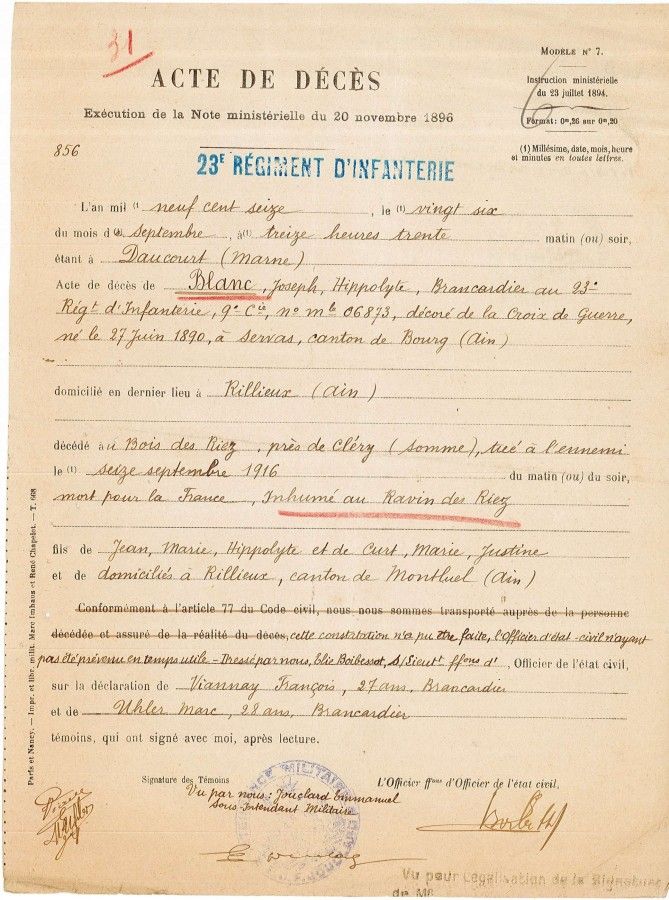 31
MODÈLE N° 7.
ACTE DE DÉCÈS
Instruction ministérielle
du 23 juillet 1894.
6
Exécution de la Note ministérielle du 20 novembre 1896
Format: 0m,26 sur 0m,20
856
(1) Millésime, date, mois, heure
et minutes en toutes lettres.
23E RÉGIMENT D'INFANTERIE
L'an mil (1 neuf cent seize , le (1) vingt six
du mois d(e) septembre , à(1) treize heures trente matin (ou) soir,
étant à Daucourt (Marne)
Acte de décès de Blanc, Joseph, Hippolyte, Brancardier au 23e
Régt d'Infanterie, 9e Cie, no mle 06873, décoré de la Croix de Guerre,
né le 27 Juin 1890, à Servas, canton de Bourg (Ain)
domicilié en dernier lieu à Rillieux (Ain)
décédé au Bois des Riez, près de Cléry (Somme), tué à l'ennemi
le (1) seize septembre 1916 du matin (ou) du soir,
mort pour la France, Inhumé au Ravin des Riez
fils de Jean, Marie, Hippolyte et de Curt, Marie, Justine
et de domiciliés à Rillieux, canton de Montluel (Ain)
Conformément à l'article 77 du Code civil, nous nous sommes transporté auprès de la personne
décédée et assuré de la réalité du décès, cette constatation n'a pu être faite, l'Officier d'état-civil n'ayant
pas été prévenu en temps utile - Dressé par nous, Elie Boibessot, S/Lieut. ffons d' , Officier de l'état civil,
sur la déclaration de Viannay François, 27 ans, Brancardier
et de Uhler Marc, 28 ans, Brancardier
témoins, qui ont signé avec moi, après lecture.
Signature des Témoins
L'Officier ffons d'Officier de l'état civil,
Vu par nous: Jouclard Emmanuel
Sous-Intendant Militaire
Vu pour Légalisation de la Signature
de MR
Paris et Nancy. — Impr. et libr. milit. Marc Imhaus et René Chapelot. — T. 668